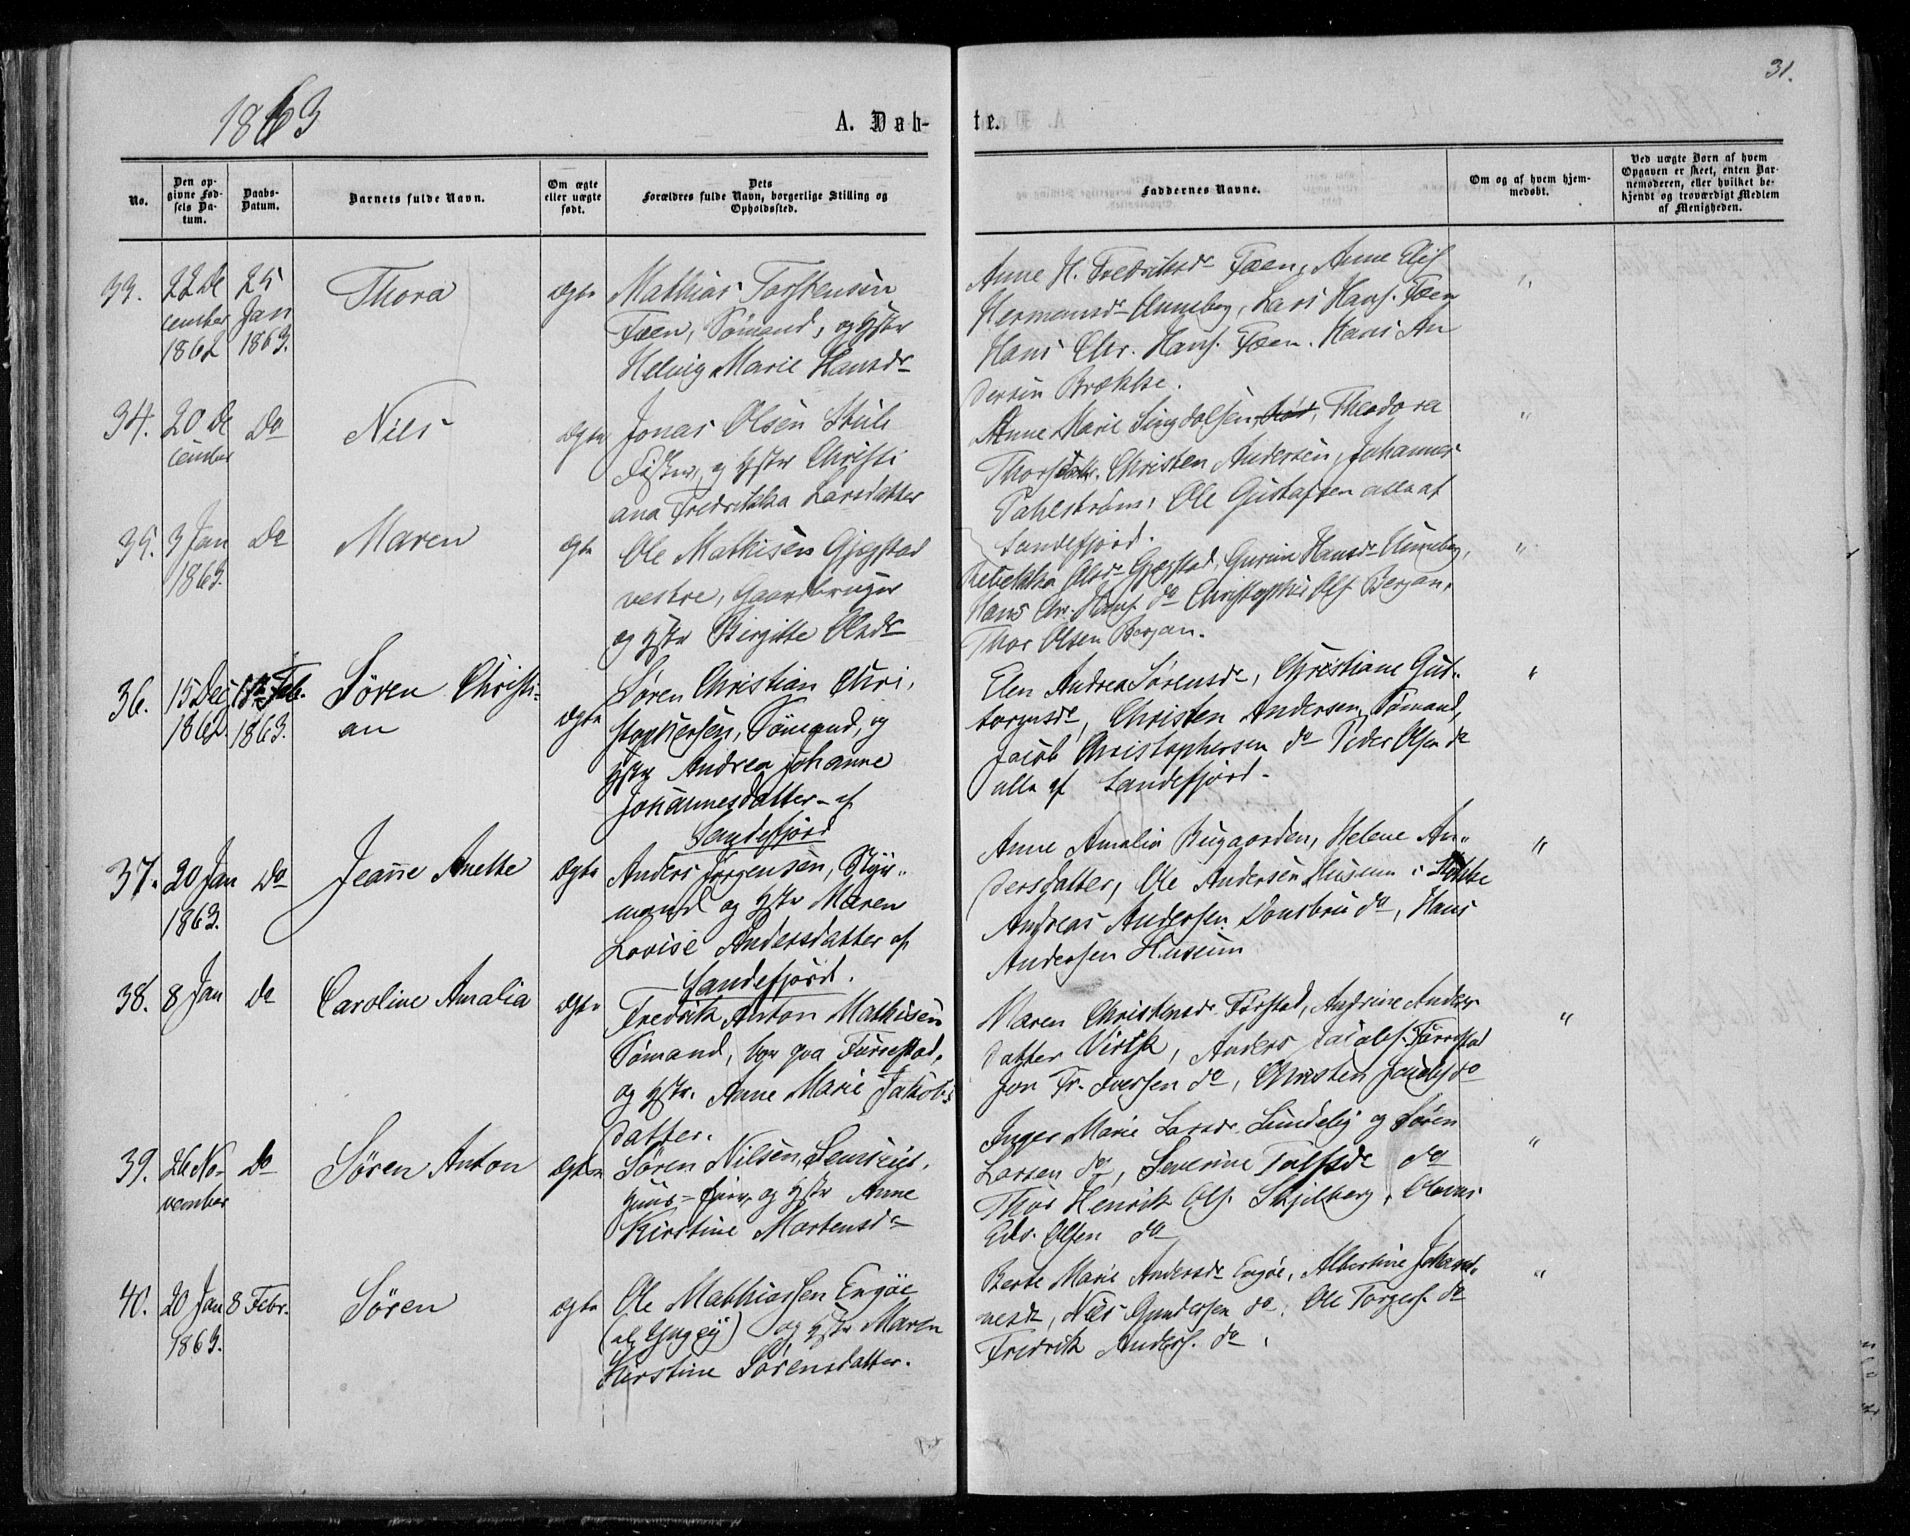 1863
31.
A. Døb-
te.
No.
Den op-
givne Fød-
sels Da-
tum.
Daabs-
Datum.
Barnets fulde Navn.
Om ægte
eller uægte
født.
Dets
Forældres fulde Navn, borgerlige Stilling og
Opholdssted.
Faddernes Navne.
Om og af hvem hjem-
medøbt.
Ved uægte Børn af hvem
Opgaven er skeet, enten Bar-
nemoderen, eller hvilket be-
kjendt og troværdigt Medlem
af Menigheden.
33.
22 De
cember
1862
25
Jan
1863.
Thora
Ægte
Mathias Torstensen
Foen, Sømand, og Hstr
Helvig Marie Hansdr
Anne H. Fredriksdr Foen, Anne Elis
Hermansdr Unneberg, Lars Hans. Foen
Hans Chr. Hans. Foen. Hans An
dersen Brække.
"
34.
20 De
cember
Do
Nils
Ægte
Jonas Olsen
Fisker, og Hstr Christi
ana Fredrikka Larsdatter
Anne Marie Lingdalsen, Theodora
Christen Andersen, Johannes
Pahlstrøm, Ole Gustafsen alle af
Sandefjord.
"
35.
3 Jan
1863.
Do
Maren
Ægte
Ole Mathisen Gjøgstad
vestre, Gaardbruger
og Hstr Birgitte Olsdr
Rebekka Olsdr Gjøgstad, Gurine Hansdr Unneberg,
Hans Chr. Hans. do Christopher Ols. Bergan,
Thor Olsen Bergan.
"
36.
15 Dec
1862
Feb.
1863.
Søren Christi-
an
Ægte
Søren Christian Chri-
stophersen, Sømand, og
Hstr Andrea Johanne
Johannesdatter - af
Sandefjord
Elen Andrea Sørensdr, Christiane Gut-
tormsdr, Christen Andersen, Sømand,
Jacob Christophersen do Peder Olsen do
alle af Sandefjord -
"
37.
20 Jan
1863.
Do
Jeanne Anette
Ægte
Anders Jørgensen, Styr-
mand og Hstr Maren
Lovise Andersdatter af
Sandefjord.
Anne Amalia Bugaarden, Helene An-
dersdatter, Ole Andersen Huseum i
Andreas Andersen do, Hans
Andersen Huseum
"
38.
8 Jan
Do
Caroline Amalia
Ægte
Fredrik Anton Mathisen
Sømand, bor paa Furrestad,
og Hstr. Anne Marie Jakobs
datter.
Maren Christensdr Førstad, Andrine Anders
datter Virik, Anders Jacobs. Førrestad
Jon Fr. Iversen do, Christen Jacobs do
"
39.
26 No-
vember
Do
Søren Anton
Ægte
Søren Nilsen,
og Hstr Anne
Kirstine Mortensdr
Inger Marie Larsdr. Lundeby og Søren
Larsen do, Severine Tolfsdr do
Thor Henrik Ols. Skjelberg,
Edv. Olsen do
"
40.
20 Jan
1863.
8 Febr.
Søren
Ægte
Ole Mathiassen Engøe
og Hstr Maren
Kirstine Sørensdatter.
Berte Marie Andersdr Engøe, Albertine Johan-
nesdr, Nils Gundersen do, Ole Torgers. do
Fredrik Anders. do.
"